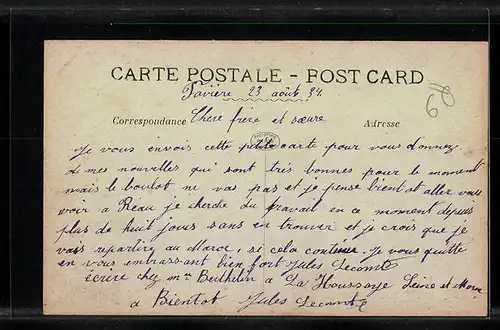 CARTE POSTALE - POST CARD
Favière 23 août 34.
Correspondance Chere frère et sœure Adresse
60
Je vous envois cette petite carte pour vous donnez
de mes nouvelles qui sont très bonnes pour le moment
mais le boulot ne vas pas et je pense bientot aller vous
voir a Reau je cherche du travail en ce moment depuis
plus de huit jours sans en trouver et je crois que je
vais repartire au Maroc, si cela continue. Je vous quitte
en vous embrassant bien fort Jules Lecomte
écrire chez mr Berthelin a La Houssaye Seine et Marne
a Bientot Jules Lecomte